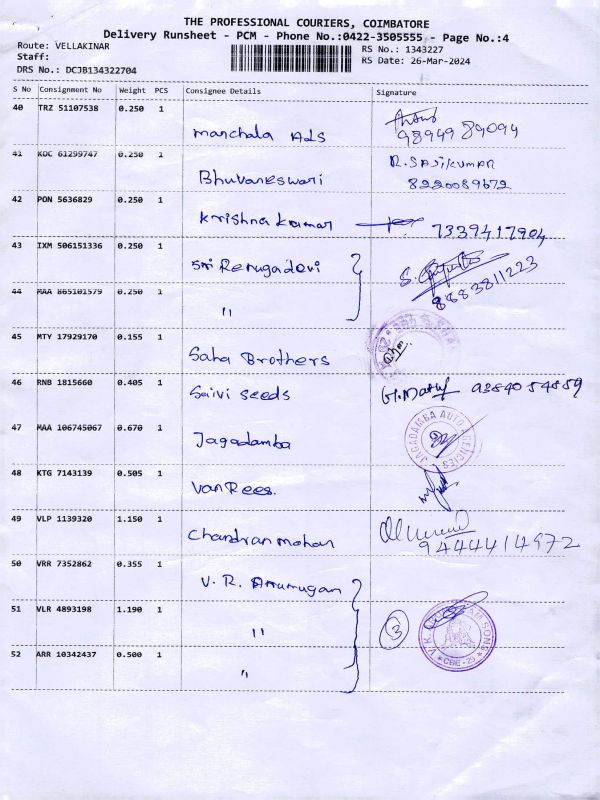 THE PROFESSIONAL COURIERS, COIMBATORE
Delivery Runsheet - PCM - Phone No.:0422-3505555 - Page No.:4
Route: VELLAKINAR RS No.: 1343227
Staff: RS Date: 26-Mar-2024
DRS No.: DCJB134322704
S No Consignment No Weight PCS Consignee Details Signature
40 TRZ 51107538 0.250 1
Manchala Ads 9894989094
41 KDC 61299747 0.250 1 R. SAJIKUMAR
Bhuvaneswari 8220089672
42 PON 5636829 0.250 1
Krishna kumar 7339417904
43 IXM 506151336 0.250 1
Sri Renugadevi 8883811223
44 MAA 865101579 0.250 1
"
45 MTY 17929170 0.155 1
Saha Brothers
46 RNB 1815660 0.405 1
Saivi seeds 9384054859
47 MAA 106745067 0.670 1
Jagadamba JAGADAMBA AUTO AGENCIES
48 KTG 7143139 0.505 1
Van Rees.
49 VLP 1139320 1.150 1
Chandran mohan 9444414972
50 VRR 7352862 0.355 1
V. R. Arrumugan
51 VLR 4893198 1.190 1
" 3 CBE-29
52 ARR 10342437 0.500 1
"